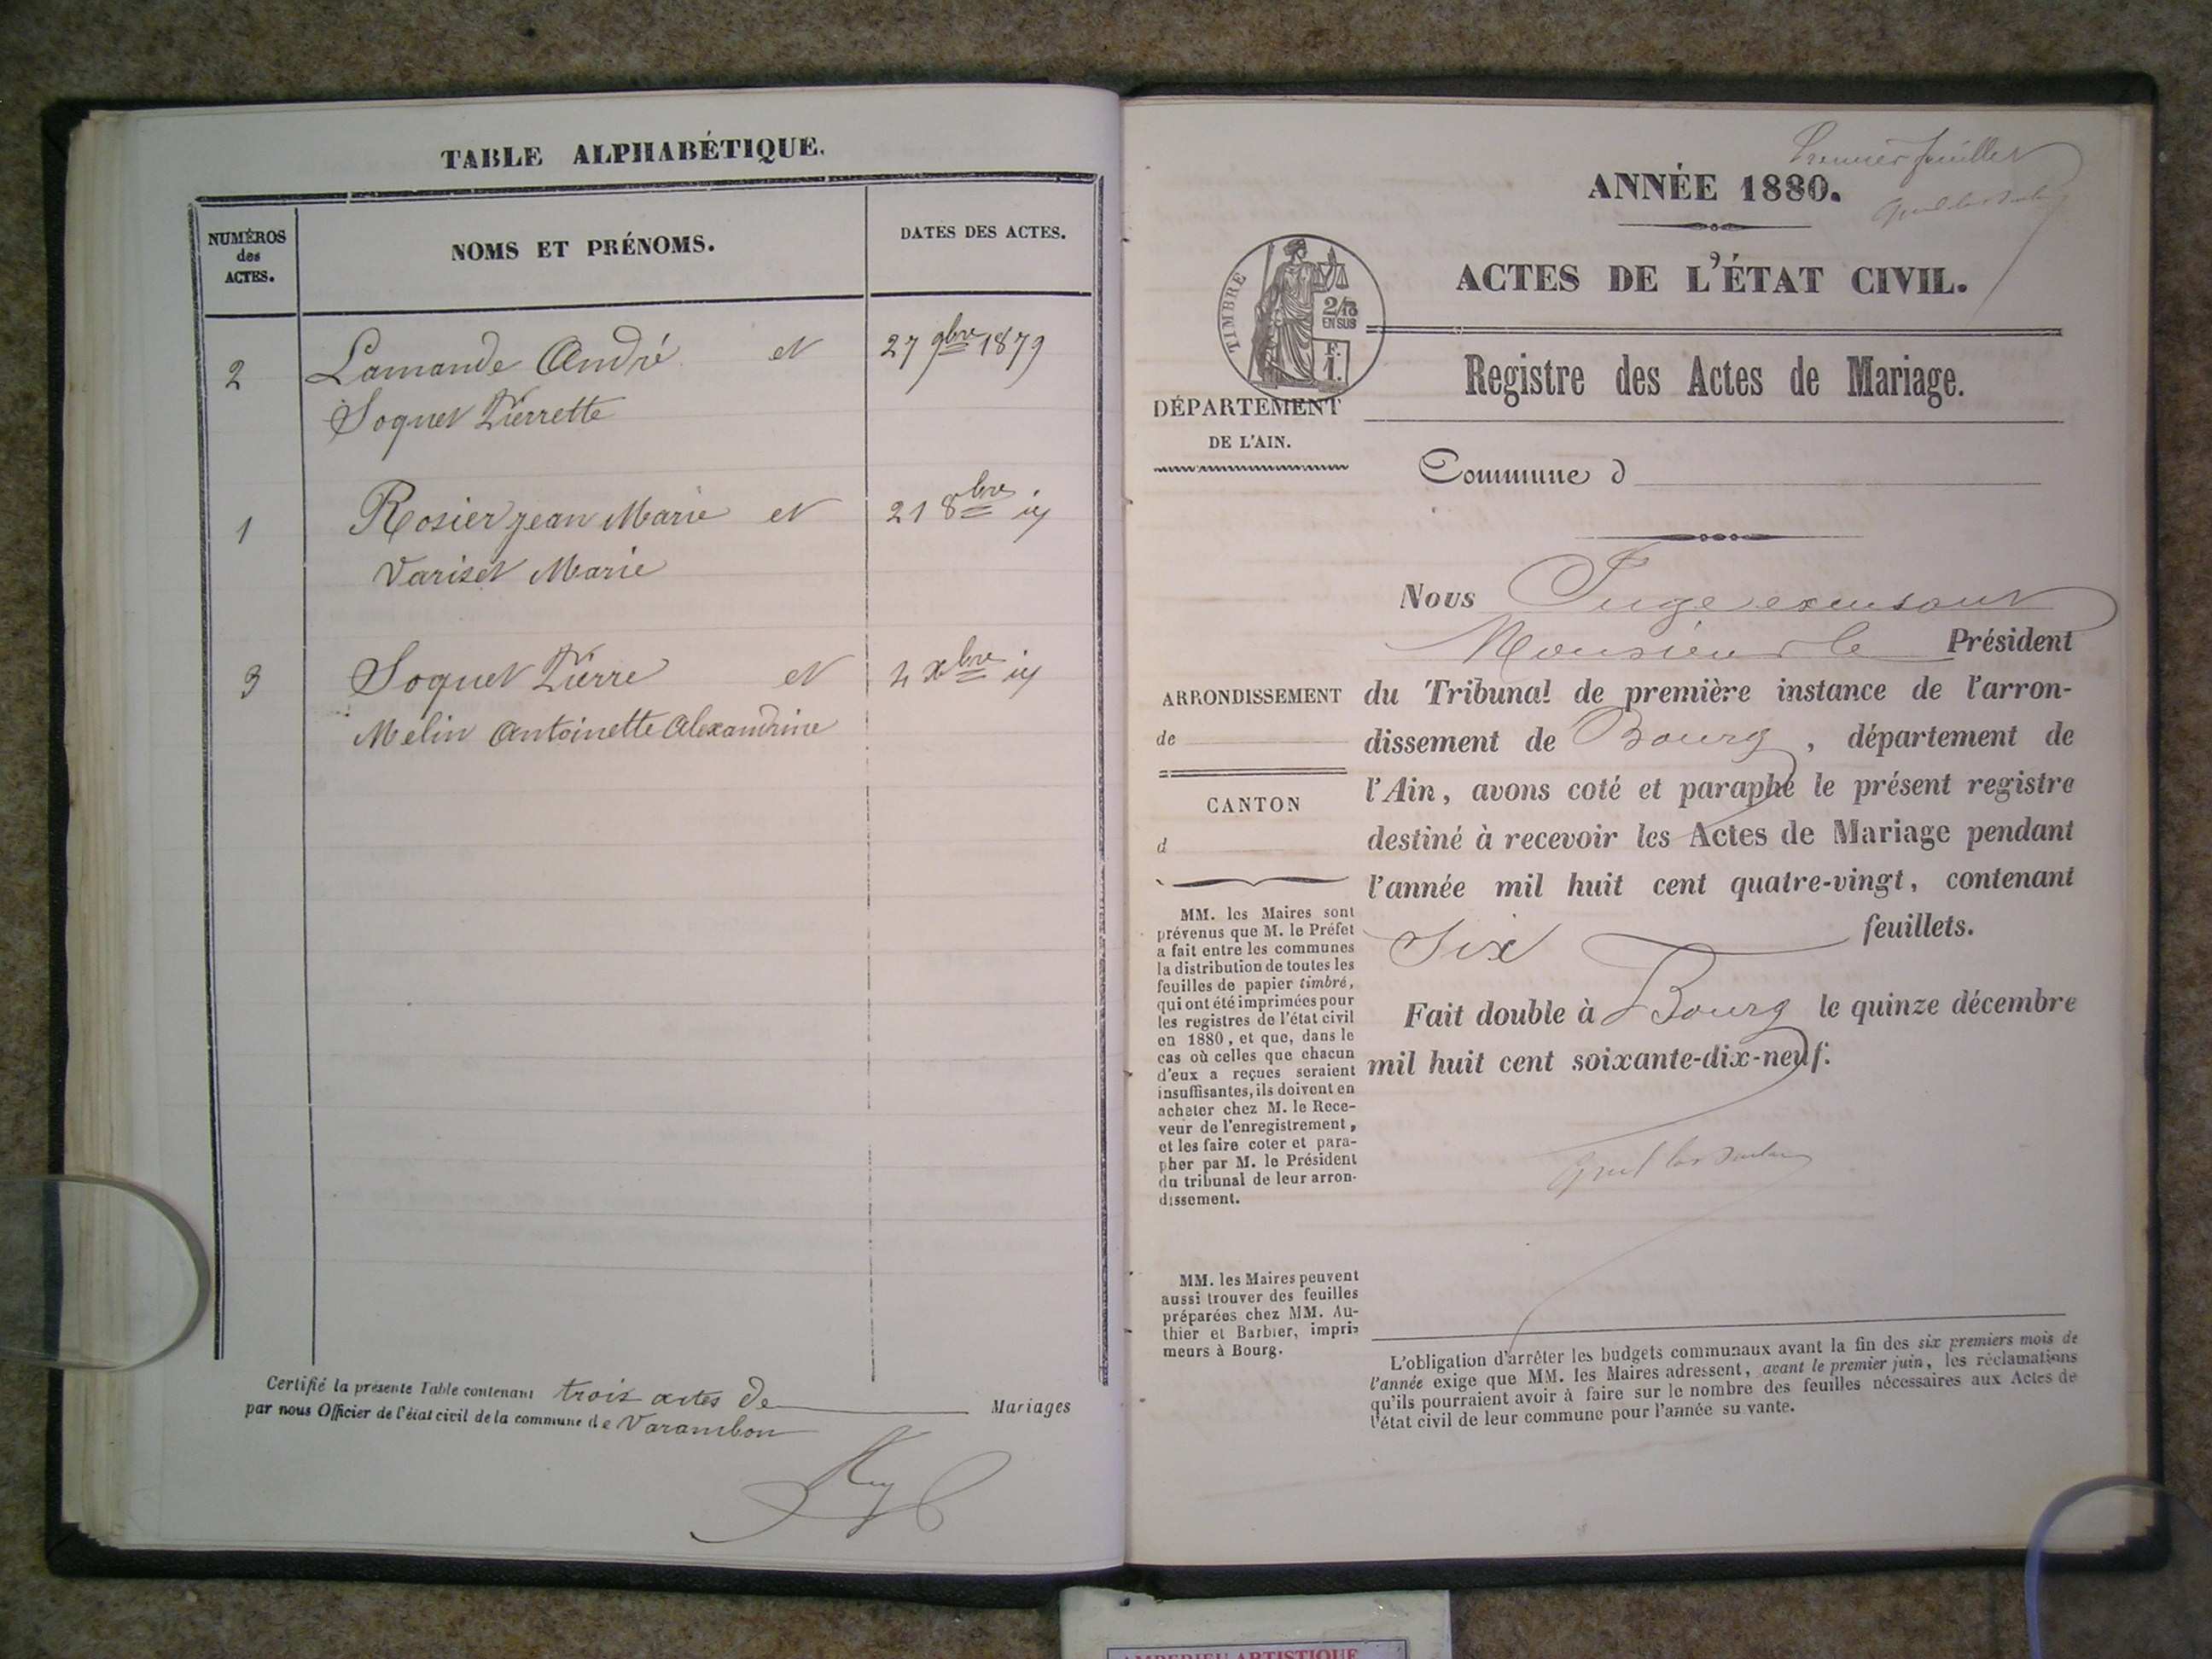 TABLE ALPHABÉTIQUE.
NUMÉROS
des
ACTES.
NOMS ET PRÉNOMS.
DATES DES ACTES.
2 Lamande André et 27 9bre 1879
Soquet Pierrette
1 Rosier jean Marie et 21 8bre id
Variset Marie
3 Soquet Pierre et 4 xbre id
Melin Antoinette Alexandrine
Certifié la présente Table contenant trois actes de Mariages
par nous Officier de l'état civil de la commune de Varambon
Premier feuillet
ANNÉE 1880.
ACTES DE L'ÉTAT CIVIL.
TIMBRE
2/10
EN SUS
F.
1.
Registre des Actes de Mariage.
DÉPARTEMENT
DE L'AIN.
Commune d
Nous Juge
Monsieur le Président
du Tribunal de première instance de l'arron-
dissement de Bourg, département de
l'Ain, avons coté et paraphé le présent registre
destiné à recevoir les Actes de Mariage pendant
l'année mil huit cent quatre-vingt, contenant
Six feuillets.
Fait double à Bourg le quinze décembre
mil huit cent soixante-dix-neuf.
ARRONDISSEMENT
de
CANTON
d
MM. les Maires sont
prévenus que M. le Préfet
a fait entre les communes
la distribution de toutes les
feuilles de papier timbré,
qui ont été imprimées pour
les registres de l'état civil
en 1880, et que, dans le
cas où celles que chacun
d'eux a reçues seraient
insuffisantes, ils doivent en
acheter chez M. le Rece-
veur de l'enregistrement,
et les faire coter et para-
pher par M. le Président
du tribunal de leur arron-
dissement.
MM. les Maires peuvent
aussi trouver des feuilles
préparées chez MM. Au-
thier et Barbier, impri-
meurs à Bourg.
L'obligation d'arrêter les budgets communaux avant la fin des six premiers mois de
l'année exige que MM. les Maires adressent, avant le premier juin, les réclamations
qu'ils pourraient avoir à faire sur le nombre des feuilles nécessaires aux Actes de
l'état civil de leur commune pour l'année su vante.
AMBERIEU ARTISTIQUE